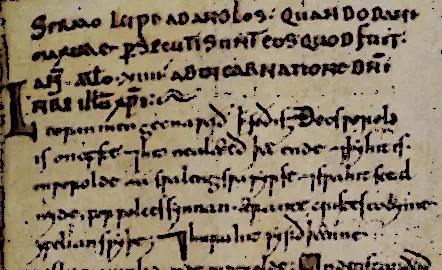 SERMO LUPI AD ANGLOS · QUANDO DANI
MAXIME PERSECUTI SUNT EOS QUOD FUIT ·
AÑ · MILLO · XIIII · AB INCARNATIONE DÑI
NRI IHU XPI
Leofan men gecnawað þ soð is Ðeos worold
is on ofste ⁊ hit nealæcð þam ende ⁊ þy hit is
on worolde aa swa leng swa wyrse ⁊ swa hit sceal
nyde for folces synnan ær antecristes tocyme
yfelian swyþe · ⁊ huru hit wyrð þænne